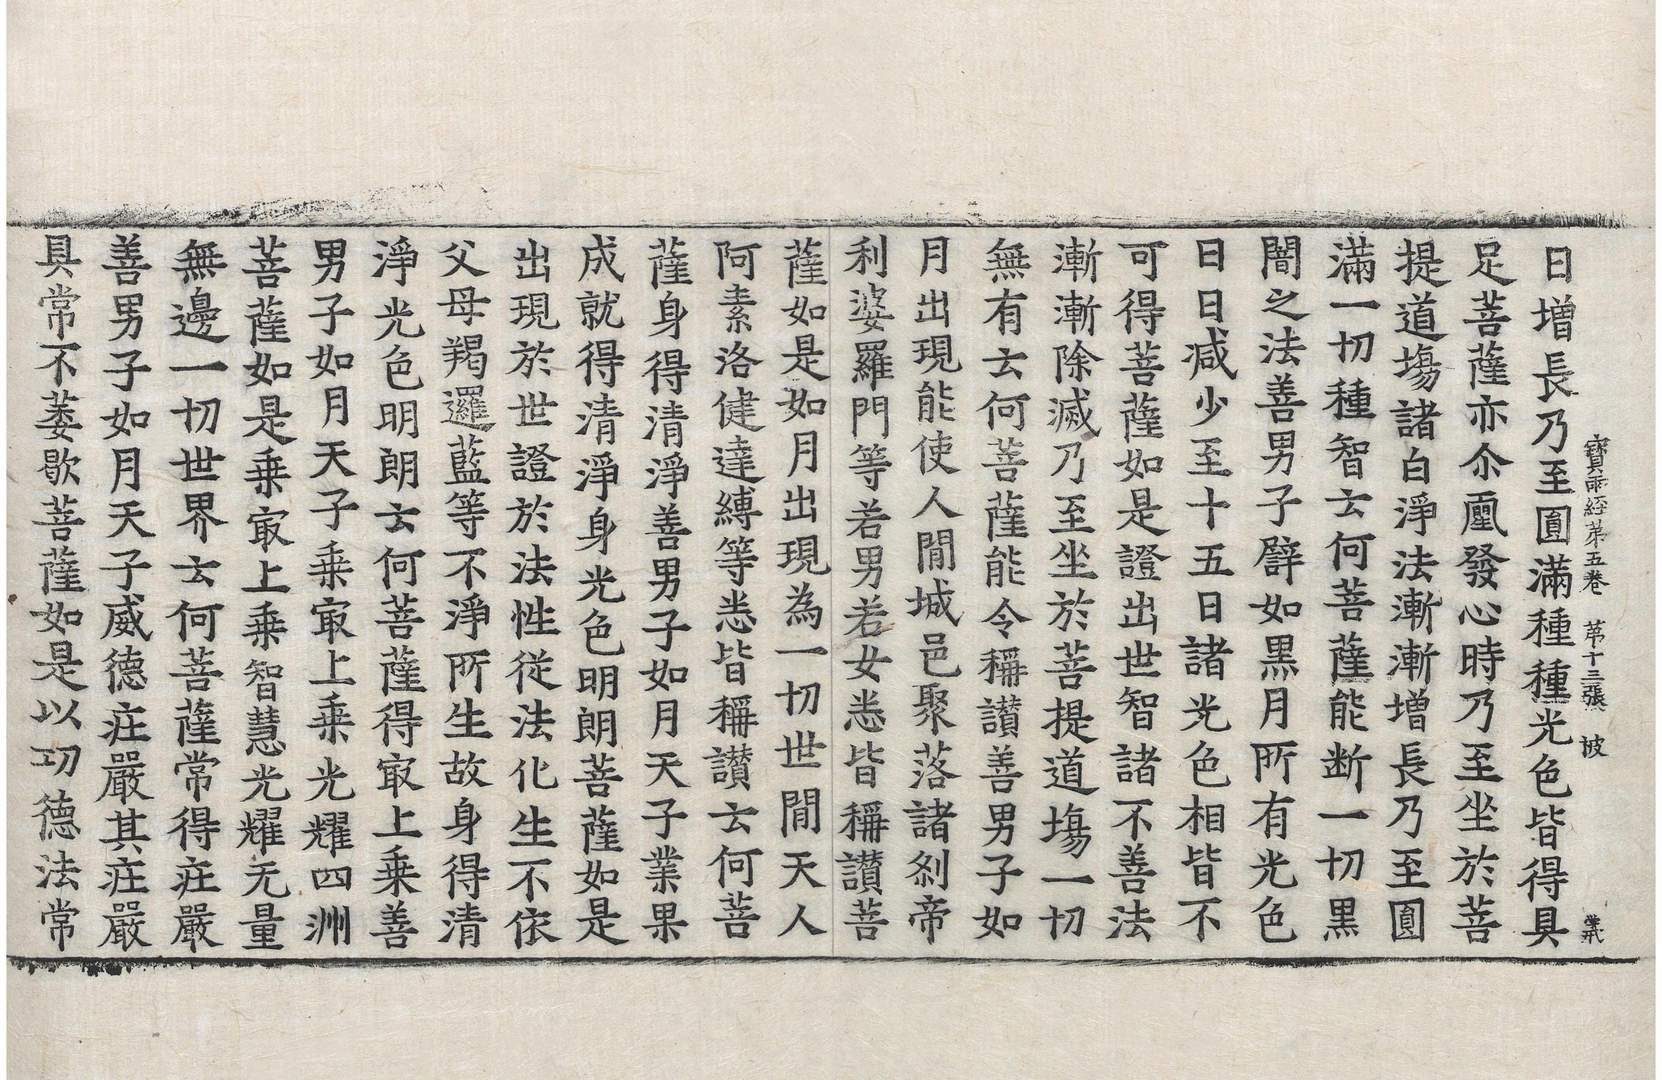 寶雨經第五卷 第十三張 被
日增長乃至圓滿種種光色皆得具
足菩薩亦尒從初發心時乃至坐於菩
提道場諸白淨法漸漸增長乃至圓
滿一切種智云何菩薩能断一切黑
闇之法善男子譬如黑月所有光色
日日減少至十五日諸光色相皆不
可得菩薩如是證出世智諸不善法
漸漸除滅乃至坐於菩提道場一切
無有云何菩薩能令稱讃善男子如
月出現能使人間城邑聚落諸剎帝
利婆羅門等若男若女悉皆稱讃菩
薩如是如月出現為一切世間天人
阿素洛健達縛等悉皆稱讃云何菩
薩身得清淨善男子如月天子業果
成就得清淨身光色明朗菩薩如是
出現於世證於法性從法化生不依
父母羯邏藍等不淨所生故身得清
淨光色明朗云何菩薩得冣上乘善
男子如月天子乘冣上乘光耀四洲
菩薩如是乘冣上乘智慧光耀无量
無邊一切世界云何菩薩常得莊嚴
善男子如月天子威德莊嚴其莊嚴
具常不萎歇菩薩如是以功德法常